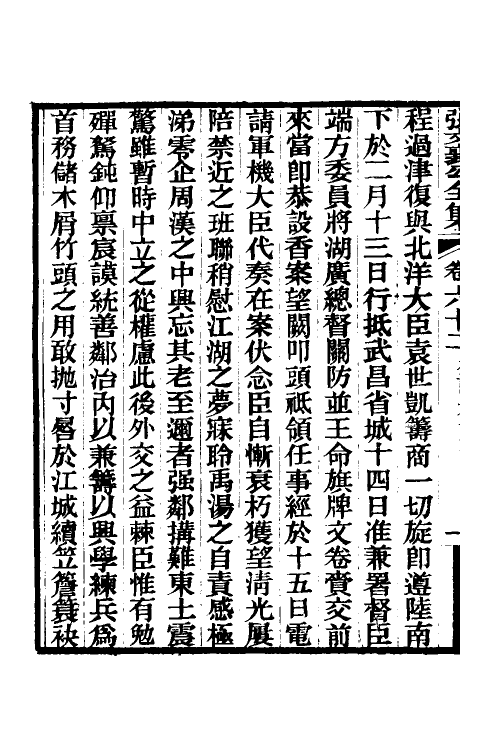 張文襄公全集 卷六十二
程過津復與北洋大臣袁世凱籌商一切旋卽遵陸南
下於二月十三日行抵武昌省城十四日准兼署督臣
端方委員將湖廣總督關防並王命旗牌文卷賫交前
來當卽恭設香案望闕叩頭祗領任事經於十五日電
請軍機大臣代奏在案伏念臣自慚衰朽獲望淸光屢
陪禁近之班聯稍慰江湖之夢寐聆禹湯之自責感極
涕零企周漢之中興忘其老至邇者强鄰搆難東土震
驚雖暫時中立之從權慮此後外交之益棘臣惟有勉
殫駑鈍仰禀宸謨統善鄰治內以兼籌以興學練兵爲
首務儲木屑竹頭之用敢拋寸晷於江城續笠簷簑袂